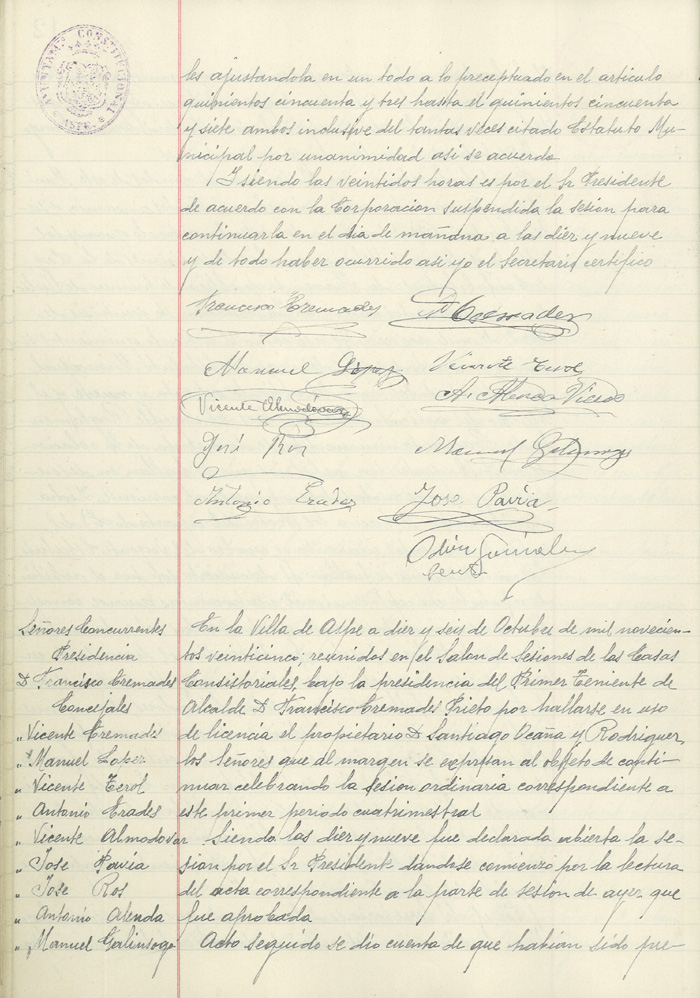 AYUNTAMTO CONSTITUCIONAL
ASPE
les ajustandola en un todo a lo preceptuado en el articulo
quinientos cincuenta y tres hasta el quinientos cincuenta
y siete ambos inclusive del tantas veces citado Estatuto Mu-
nicipal por unanimidad asi se acuerda
Y siendo las veintidos horas es por el Sr Presidente
de acuerdo con la Corporacion suspendida la sesion para
continuarla en el dia de mañana a las diez y nueve
y de todo haber ocurrido asi yo el Secretario certifico
Francisco Cremades
V Cremades
Manuel López
Vicente Terol
Vicente Almodóvar
A. Alenda
José Ros
Manuel Galinsoga
Antonio Erades
Jose Pavia
Odón González
Señores Concurrentes
Presidencia
D Francisco Cremades
Concejales
" Vicente Cremades
" Manuel Lopez
" Vicente Terol
" Antonio Erades
" Vicente Almodovar
" Jose Pavia
" Jose Ros
" Antonio Alenda
" Manuel Galinsoga
En la Villa de Aspe a diez y seis de Octubre de mil novecien-
tos veinticinco; reunidos en el Salon de Sesiones de las Casas
Consistoriales, bajo la presidencia del Primer Teniente de
Alcalde D Francisco Cremades Prieto por hallarse en uso
de licencia el propietario D Santiago Ocaña y Rodriguez
los Señores que al margen se expresan al objeto de conti-
nuar celebrando la sesion ordinaria correspondiente a
este primer periodo cuatrimestral
Siendo las diez y nueve fue declarada abierta la se-
sion por el Sr Presidente dandose comienzo por la lectura
del acta correspondiente a la parte de sesion de ayer que
fue aprobada
Acto seguido se dio cuenta de que habian sido pre-